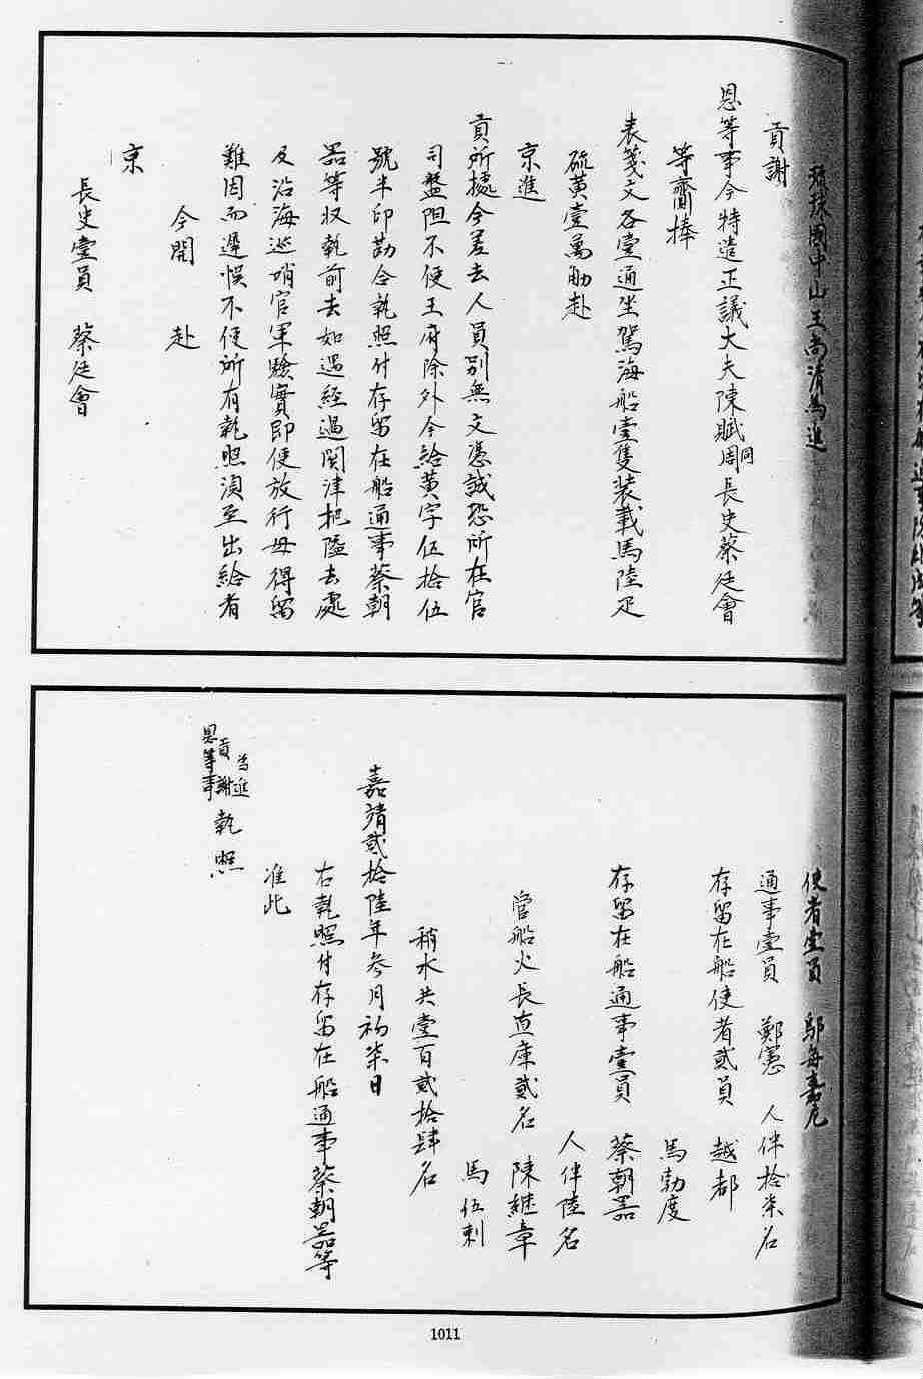 琉球國中山王尚清為進
貢謝
恩等事今特造正議大夫陳賦周同長史蔡廷會
等齎捧
表箋文各壹通坐駕海船壹隻裝載馬陸疋
硫黃壹萬觔赴
京進
貢所據今差去人員別無文憑誠恐所在官
司盤阻不便王府除外今給黃字伍拾伍
號半印勘合執照付存留在船通事蔡朝
器等収執前去如遇經過関津把隘去處
及沿海巡哨官軍驗實即便放行毋得留
難因而遲悞不便所有執照湏至出給者
今開赴
京
長史壹員　蔡廷會
使者壹員　鄔每嘉尼
通事壹員　鄭憲　人伴拾柒名
存留在船使者貳員　越都
馬勃度
存留在船通事壹員　蔡朝器
人伴陸名
管船火長直庫貳名　陳継章
馬伍剌
稍水共壹百貳拾肆名
嘉靖貳拾陸年參月初柒日
右執照付存留在船通事蔡朝器等
准此
為進
貢謝
恩等事
執照
1011